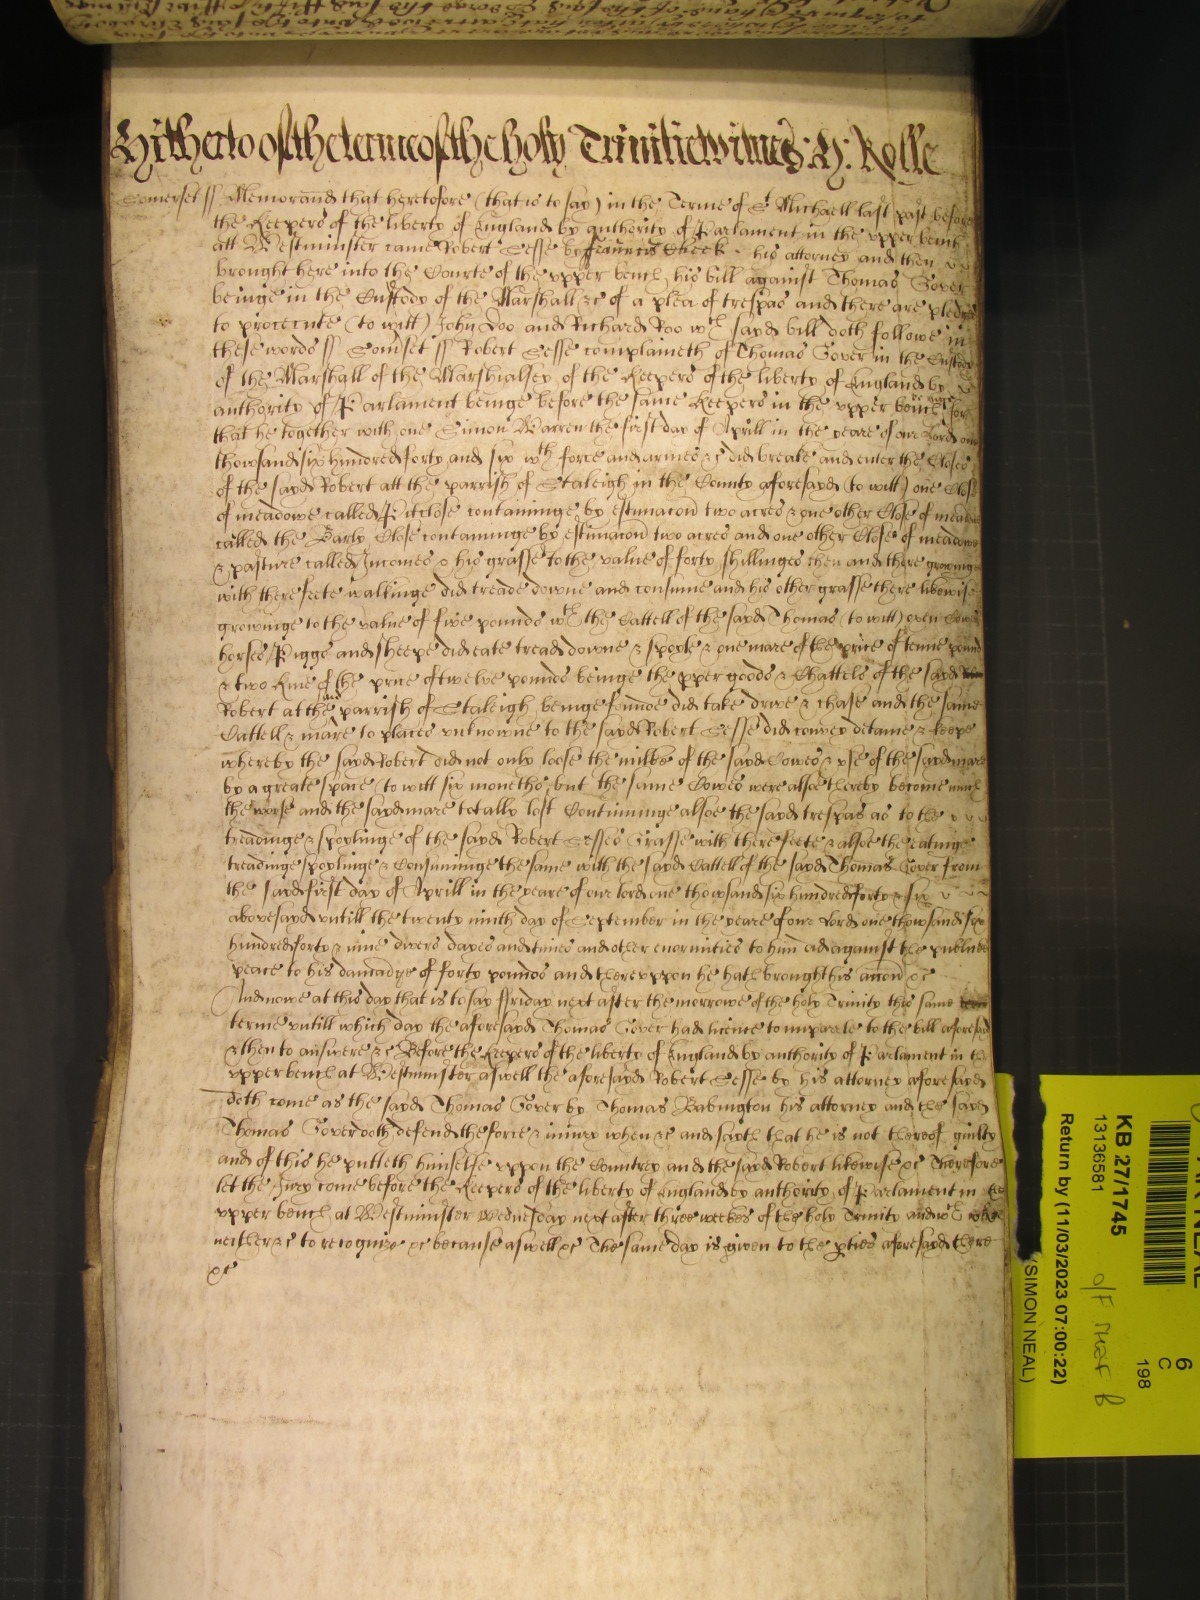 Hitherto of the terme of the holy Trinitie witnes: H: Rolle
Somerset ss Memorand that heretofore (that is to say) in the Terme of St Michaell last past before
the Keepers of the liberty of England by authority of Parlament in the upper bench
att Westminster came Robert Sesse by Francis Cheek his attorney and then
brought here into the Courte of the upper bench his bill against Thomas Gover
beinge in the Custody of the Marshall &c of a plea of trespas and there are pledges
to prosecute (to witt) John Doo and Richard Roo wch sayd bill doth followe in
these words ss Somset ss Robert Sesse complaineth of Thomas Gover in the Custody
of the Marshall of the Marshialsey of the Keepers of the liberty of England by
authority of Parlament beinge before the same Keepers in the upper bench for
that he together with one Simon Warren the first day of Aprill in the yeare of our Lord one
thowsand six hundred forty and six wth force and armes &c did breake and enter the Closes
of the sayd Robert att the parrish of Staleigh in the County aforesayd (to witt) one Close
of meadowe called Pitclose contaminge by estimacon two acres & one other Close of meadowe
called the Barly Close contaminge by estimacon two acres and one other Close of meadowe
& pasture called Incomes & his grasse to the value of forty shillinges then and there growinge
with there feete walkinge did treade downe and consume and his other grasse there likewise
growinge to the value of five pounds wth the Cattell of the sayd Thomas (to witt) oxen Cowes
horses Piggs and sheepe did eate tread downe & spoyle & one mare of the price of tenne pound
& two kine of the price of twelve pounds beinge the pper goods & Chattels of the sayd
Robert at the sayd parrish of Staleigh beinge founde did take drive & chase and the same
Cattell & mare to places unknowne to the sayd Robert Sesse did convey detaine & keepe
whereby the sayd Robert did not only loose the milke of the sayd Cowes & use of the sayd mare
by a greate space (to witt six moneths) but the same Cowes were alsoe thereby become much
the worse and the sayd mare totally lost Continuinge alsoe the sayd trespas as to the
treadinge & spoylinge of the sayd Robert Sesses Grasse with there feete & alsoe the eatinge
treadinge spoylinge & Consuminge the same with the sayd Cattell of the sayd Thomas Gover from
the sayd first day of Aprill in the yeare of our lord one thowsand six hundred forty & six
abovesayd untill the twenty ninth day of September in the yeare of our Lord one thowsand six
hundred forty & nine divers dayes and times and other enormities to him did against the publicke
peace to his damadge of forty pounds and thereuppon he hath brought his accon &c
And nowe at this day that is to say ffriday next after the morrowe of the holy Trinity this same
terme untill which day the aforesayd Thomas Gover had licence to imparle to the bill aforesaid
& then to answere &c Before the Keepers of the liberty of England by authority of Parlament in the
upper bench at Westminster aswell the aforesayd Robert Sesse by his attorney aforesayd
doth come as the sayd Thomas Gover by Thomas Babington his attorney and the sayd
Thomas Gover doth defend the force & iniury when &c and sayth that he is not thereof guilty
and of this he putteth himselfe uppon the Countrey and the sayd Robert likewise &c Therefore
let the Jury come before the Keepers of the liberty of England by authority of Parlament in the
upper bench at Westminster Wednesday next after three weekes of the holy Trinity and wch
neither &c to recognize &c because aswell &c The same day is given to the pties aforesayd there
&c
KB 27/1745
13136581
Return by (11/03/2023 07:00:22)
(SIMON NEAL)
6
C
198